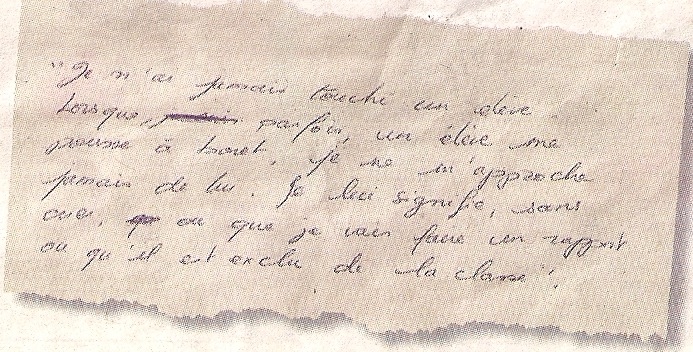 "Je n'ai jamais touché un élève.
Lorsque, parfois, un élève me
pousse à bout, je ne m'approche
jamais de lui. Je lui signifie, sans
crier, ou que je vais faire un rapport
ou qu'il est exclu de la classe".